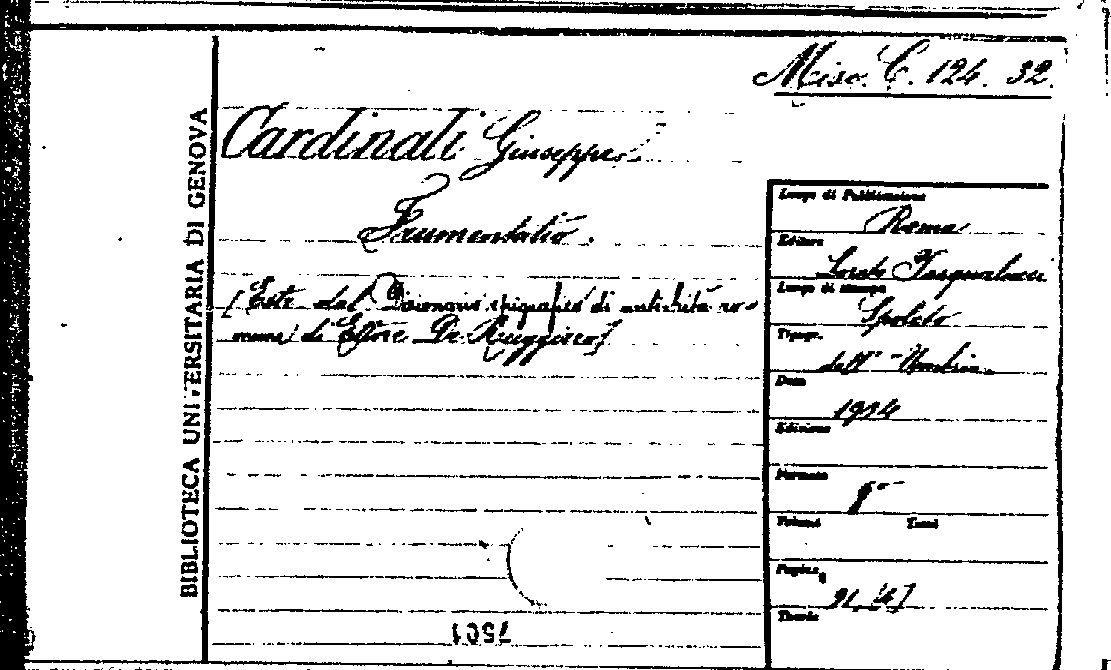 Misc. C. 124. 32.
BIBLIOTECA UNIVERSITARIA DI GENOVA
Cardinali Giuseppe.
Frumentatio.
[Estr. dal Dizionario epigrafico di antichità ro-
mane di Ettore De Ruggiero]
Luogo di Pubblicazione
Roma
Editore
Loreto Pasqualucci
Luogo di stampa
Spoleto
Tipogr.
dell'Umbria
Data
1924
Edizione
Formato
8°
Volumi Tomi
Pagine
91, [4]
Tavole
7501